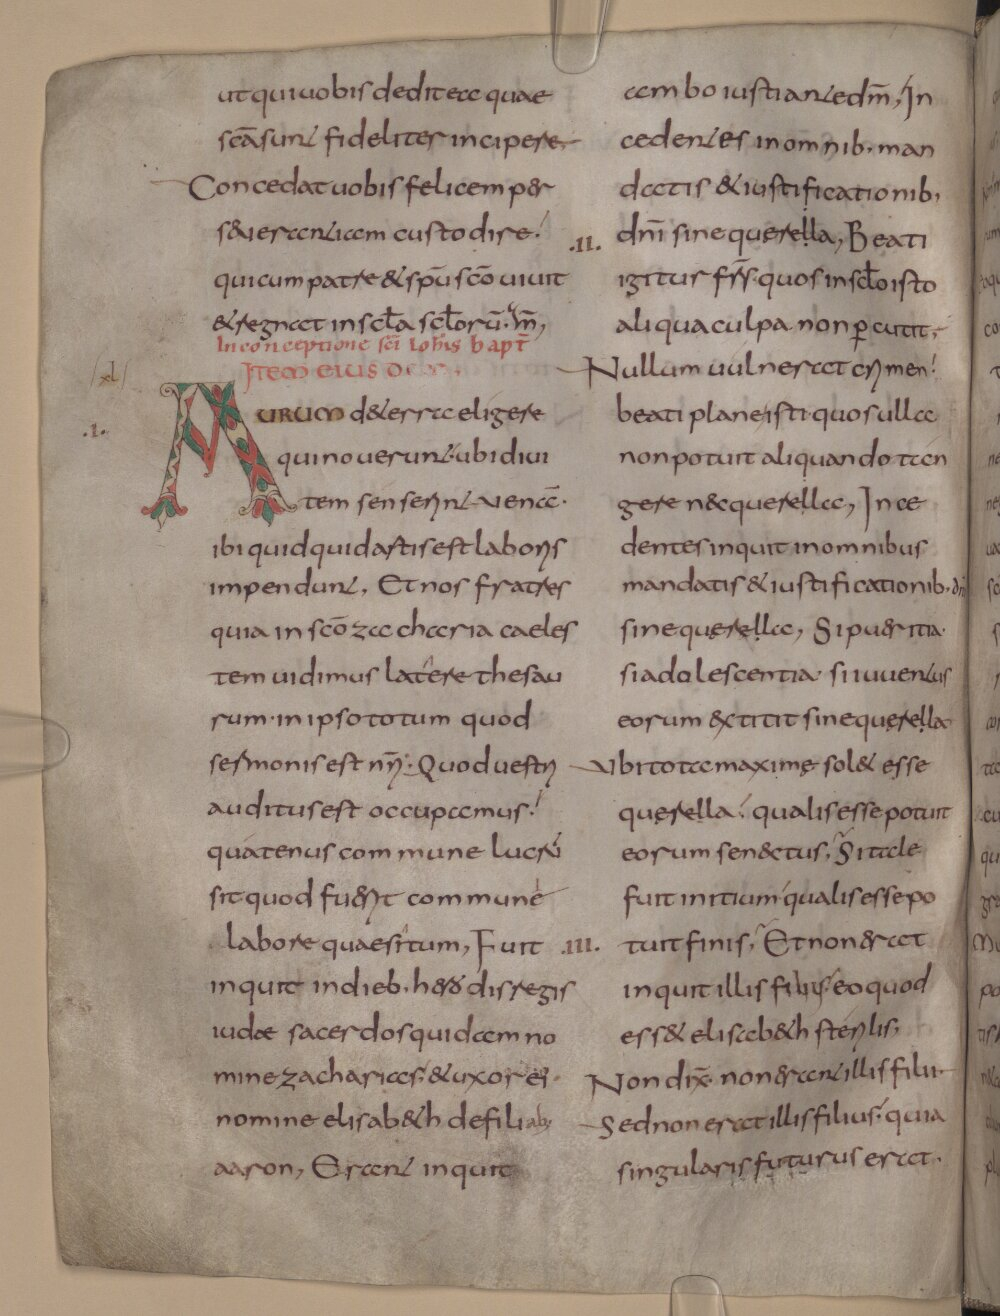 ut qui uobis dedit ea quae
sc̄a sunt fideliter incipere
Concedat uobis felicem per
seuerantiam custodire.
qui cum patre & sp̄u sc̄o uiuit
& regnat in scl̄a scl̄orū. am̄,
In conceptione sc̄i iohīs bapt̄
Item eius
xl
.i.
AURUM de terra eligere
qui nouerunt ubi diui
tem senserint uenā.
ibi quidquid artis est laboris
impendunt, Et nos fratres
quia in sc̄o zacharia caeles
tem uidimus latere thesau
rum. in ipso totum quod
sermonis est nr̄i. Quod uestri
auditus est occupemus.
quatenus commune lucrū
sit quod fuerit commune
labore quaesitum, Fuit
inquit in dieb. herodis regis
iudae sacerdos quidam no
mine zacharias. & uxor ei.
nomine elisab&h de filiab.
aaron, Erant inquit
ambo iusti ante dm̄, In
cedentes in omnib. man
datis & iustificationib.
.ii. dn̄i sine querella, Beati
igitur fr̄s. quos in scl̄o isto
aliqua culpa non percutit,
Nullum uulnerat crimen.
beati plane isti quos ulla
non potuit aliquando tan
gere nec querella, Ince
dentes inquit in omnibus
mandatis & iustificationib. dn̄i
sine querella, Si pueritia.
si adolescentia. si iuuentus
eorum extitit sine querella
Vbi tota maxime sol& esse
querella. qualis esse potuit
eorum senectus, Si tale
fuit initium qualis esse po
.iii. tuit finis, Et non erat
inquit illis filius, eo quod
ess& elisab&h sterilis,
Non dix̄. non erant illis filii.
Sed non erat illis filius. quia
singularis futurus erat.